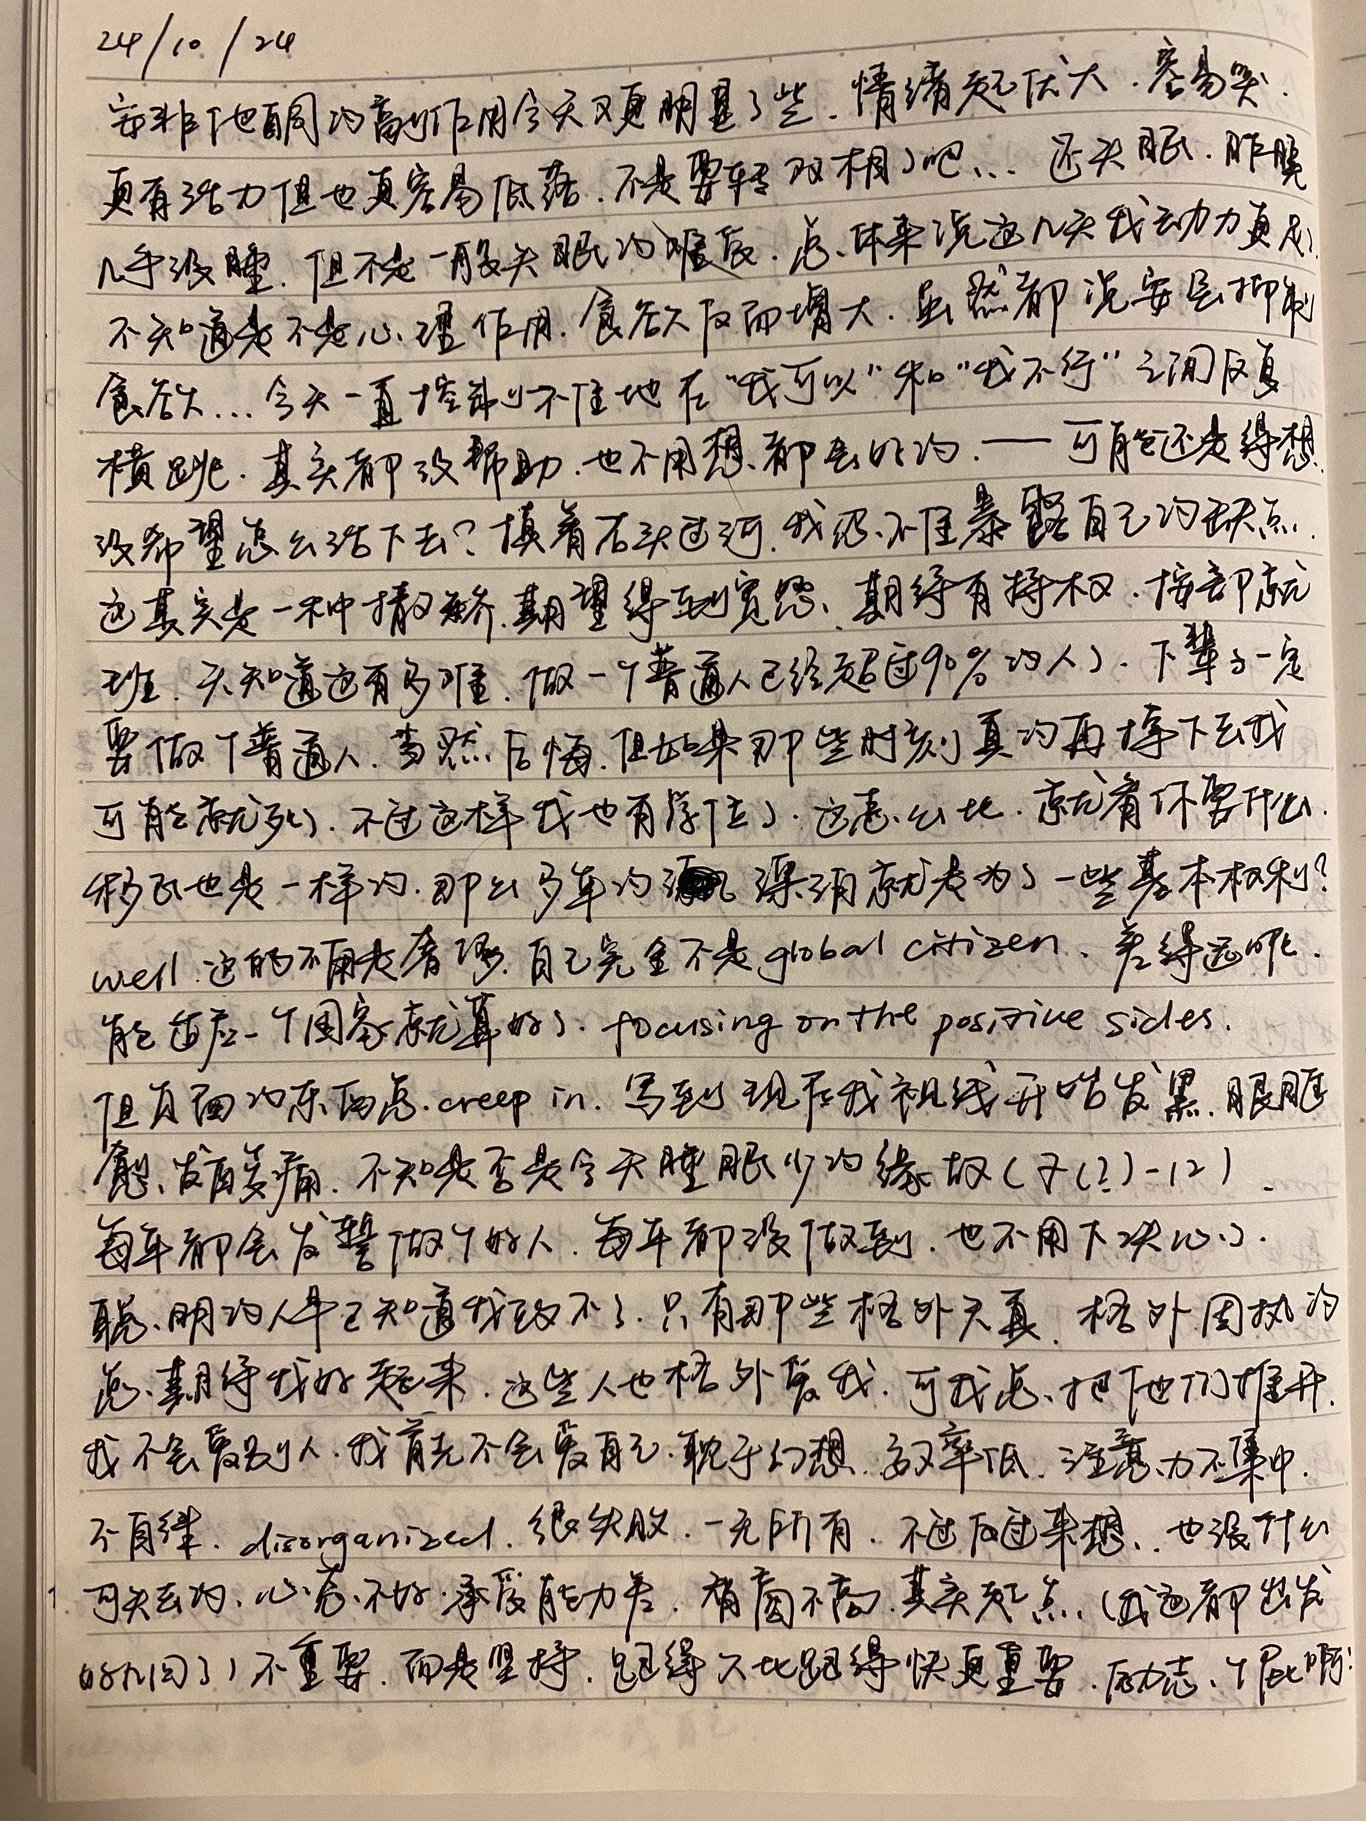 24/10/24
安非他酮的副作用今天又更明显了些．情绪起伏大．容易哭．
更有活力但也更容易低落．不是要转双相了吧... 还失眠．昨晚
几乎没睡．但不是一般失眠的．总体来说这几天我动力更足．
不知道是不是心理作用．食欲反而增大．虽然都说安会抑制
食欲... 今天一直控制不住地在“我可以”和“我不行”之间反复
横跳．其实都没帮助．也不用想．都会好的．—— 可能还是得想．
没希望怎么活下去？摸着石头过河．我忍不住暴露自己的缺点．
这其实是一种撒娇．期望得到宽恕、期待有特权．按部就
班．天知道这有多难．做一个普通人已经超过90%的人了．下辈子一定
要做个普通人．当然后悔．但如果那些时刻真的再撑下去我
可能就死了．不过这样我也有学位了．这怎么比．就看你要什么．
移民也是一样的．那么多年的 深漂就是为了一些基本权利？
well 这的不用是奢侈．自己完全不是global citizen、差得远呢．
能适应一个国家就算好了．focusing on the positive sides．
但负面的东西总 creep in．写到现在我视线开始发黑．眼眶
发酸痛．不知是否是今天睡眠少的缘故(7(?)-12)．
每年都会发誓做个好人．每年都没做到．也不用下决心了．
聪明的人早已知道我改不了．只有那些格外天真、格外固执的
总期待我好起来．这些人也格外爱我．可我总把他们推开．
我不会爱别人．我首先不会爱自己．耽于幻想．效率低．注意力不集中．
不自律．disorganized．很失败．一无所有．不过反过来想．也没什么
可失去的．心态不好．承受能力差．有图不高．其实起点 (我这都出发
好久了) 不重要．而是坚持．跑得久比跑得快更重要．励志个屁啊！